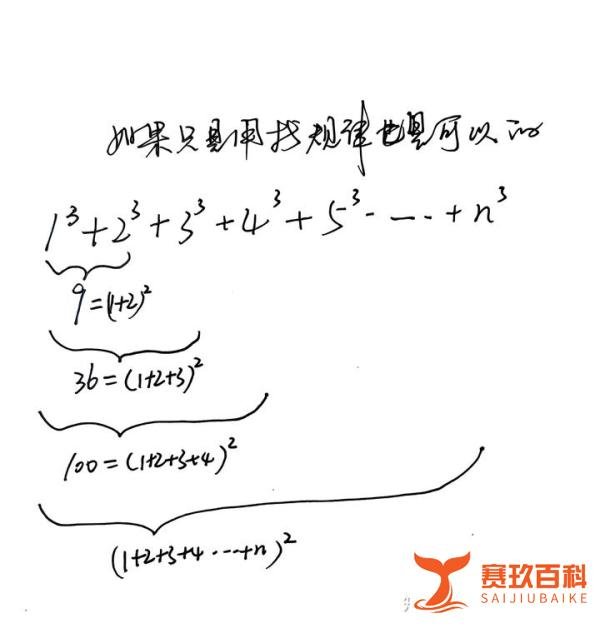 如果只是用找规律也是可以的
1³+2³+3³+4³+5³-----+n³
9=(1+2)²
36=(1+2+3)²
100=(1+2+3+4)²
(1+2+3+4·---+n)²
赛玖百科
SAIJIUBAIKE